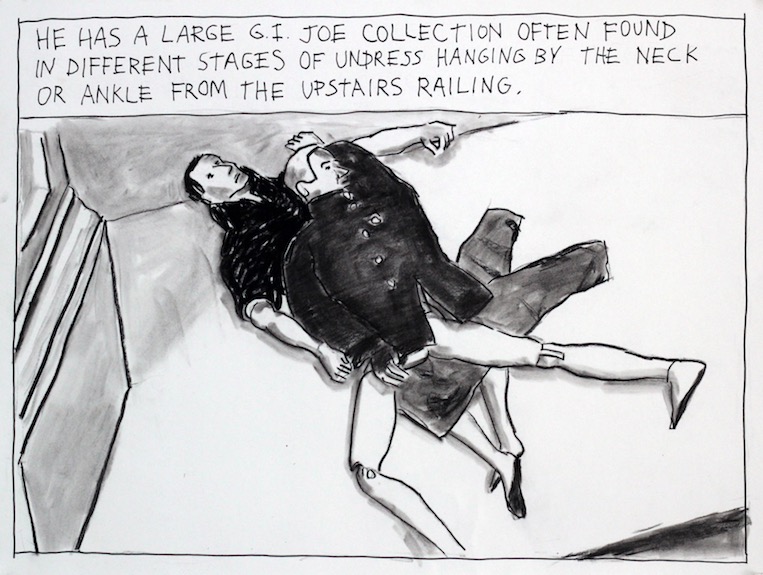 HE HAS A LARGE G.I. JOE COLLECTION OFTEN FOUND
IN DIFFERENT STAGES OF UNDRESS HANGING BY THE NECK
OR ANKLE FROM THE UPSTAIRS RAILING.